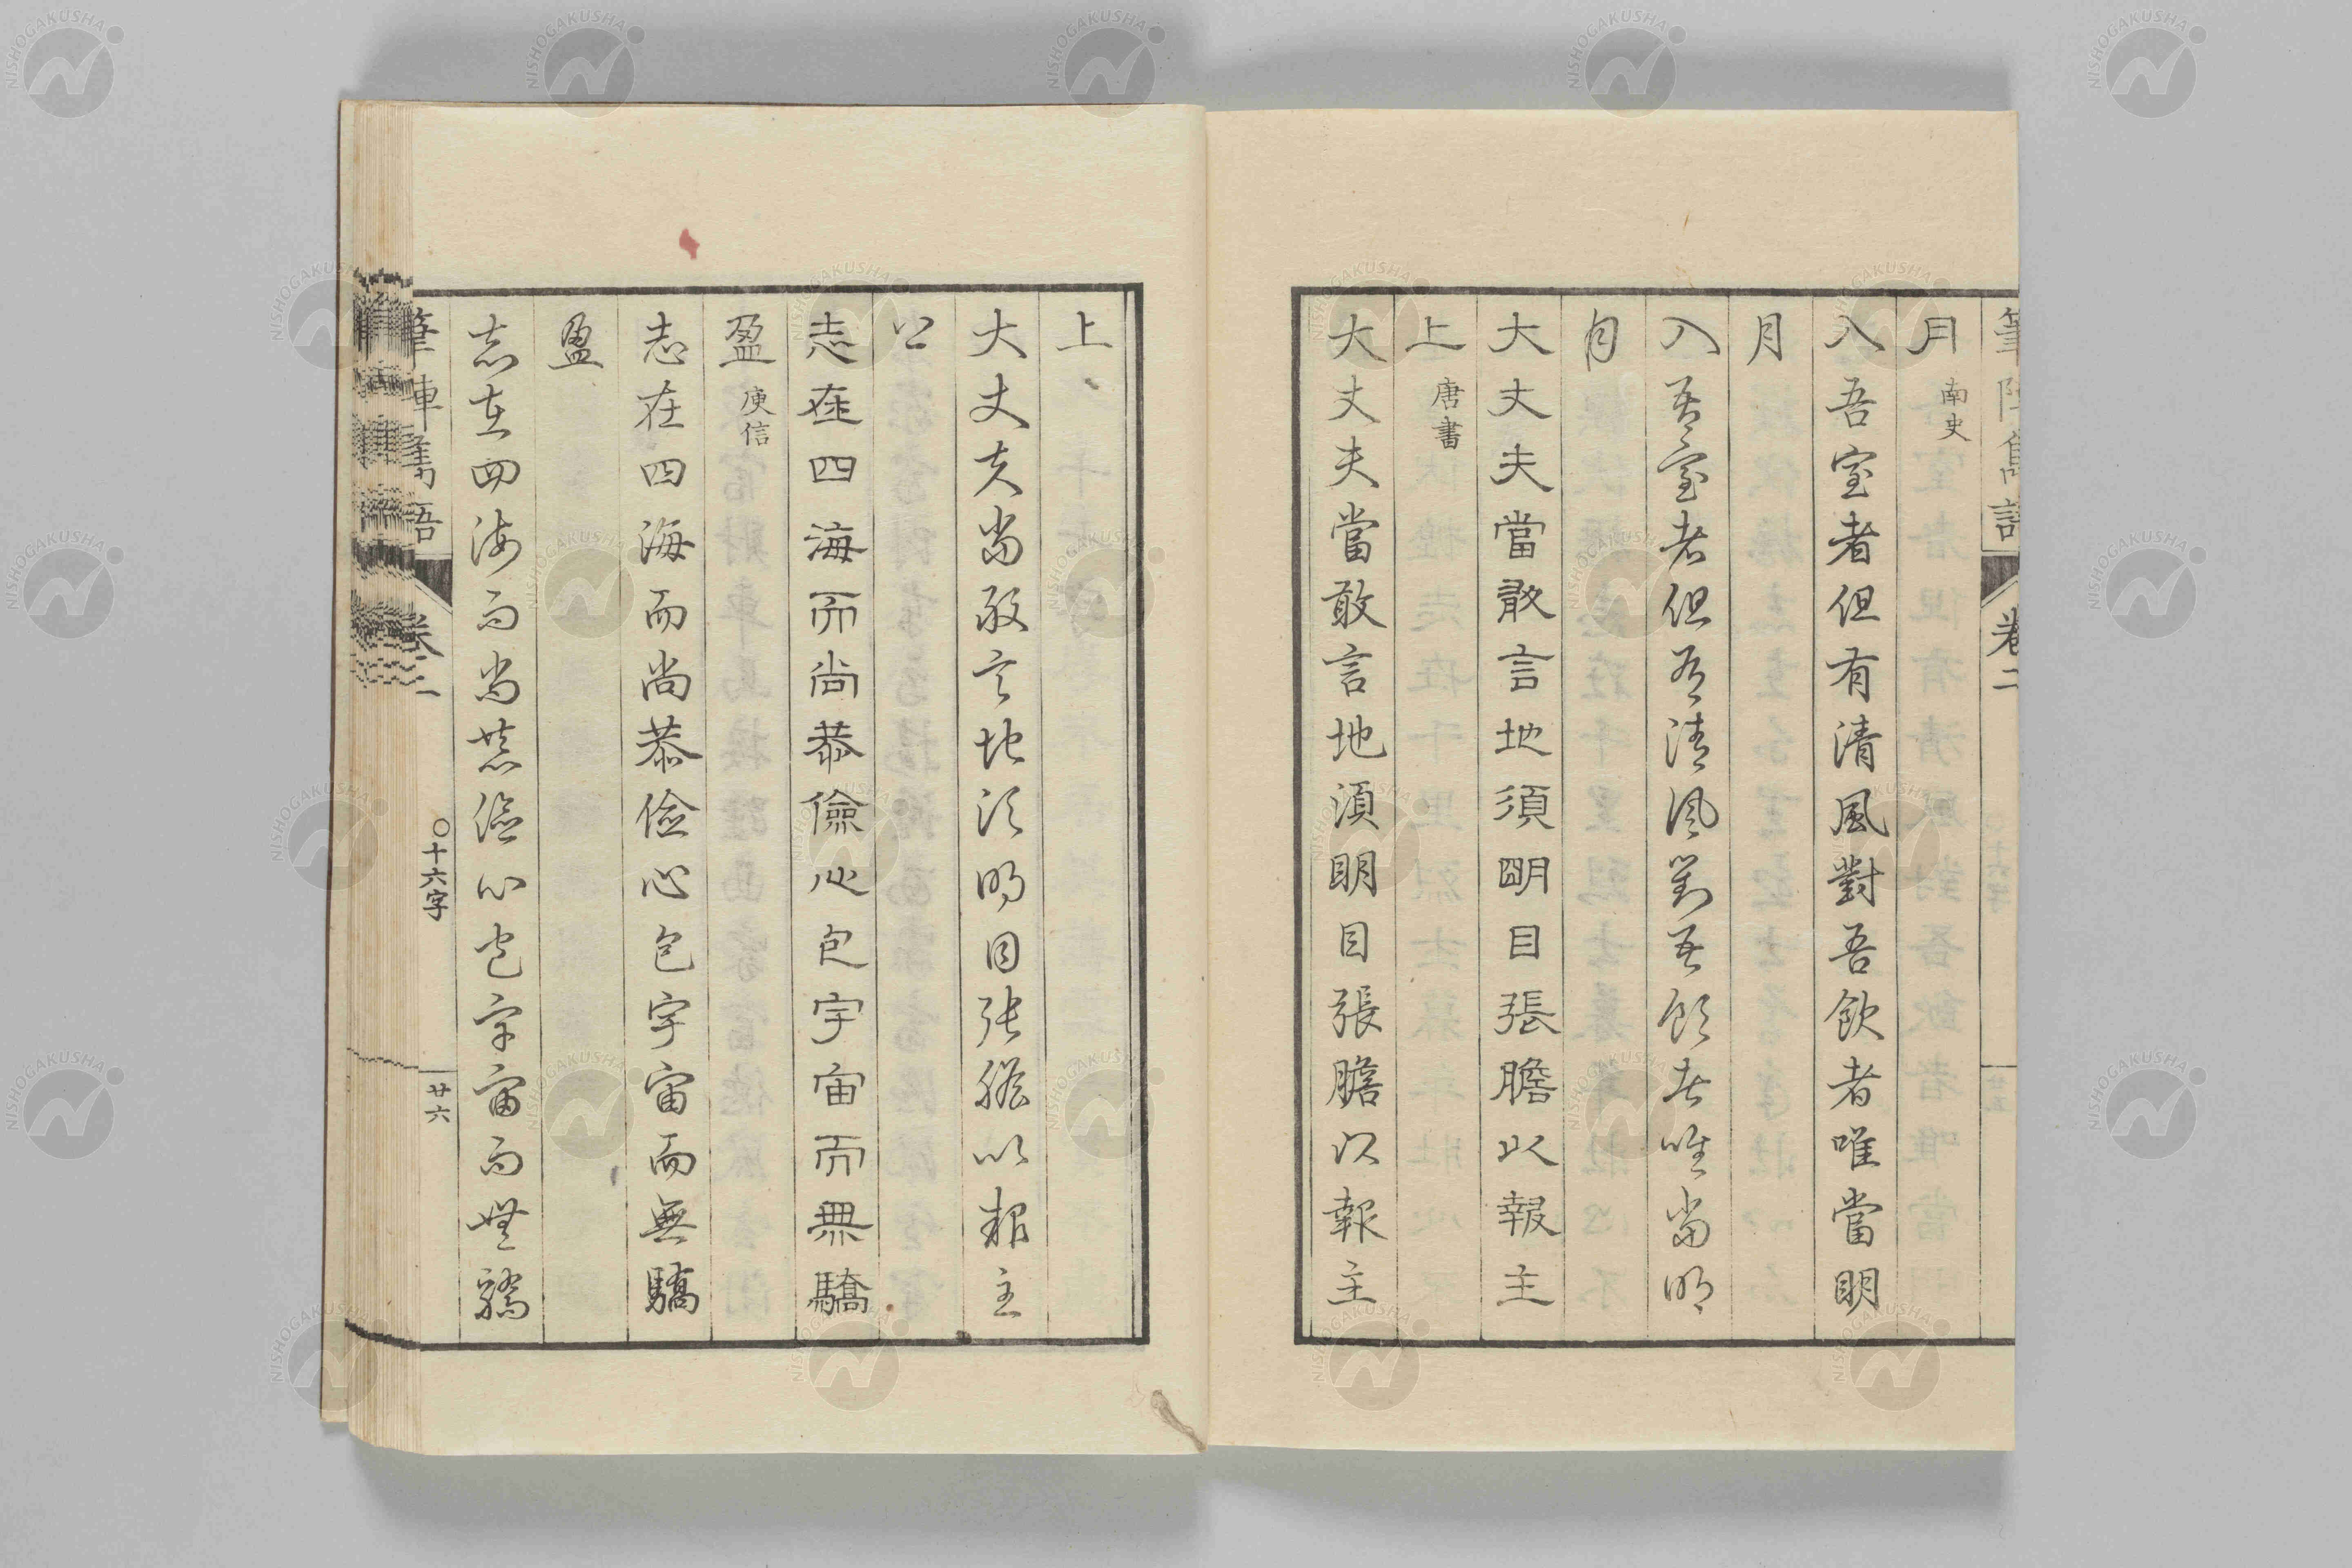 筆陣雋語 卷二
月 南史
入吾室者但有清風對吾飲者唯當明
月
入吾室者但有清風對吾飲者唯當明
月
大丈夫當敢言地須明目張膽以報主
上 唐書
大丈夫當敢言地須明目張膽以報主
上
大丈夫當敢言地須明目張膽以報主
上
志在四海而尚恭儉心包宇宙而無驕
盈 庾信
志在四海而尚恭儉心包宇宙而無驕
盈
志在四海而尚恭儉心包宇宙而無驕
筆陣雋語 卷二 〇十六字 廿六
NISHOGAKUSHA